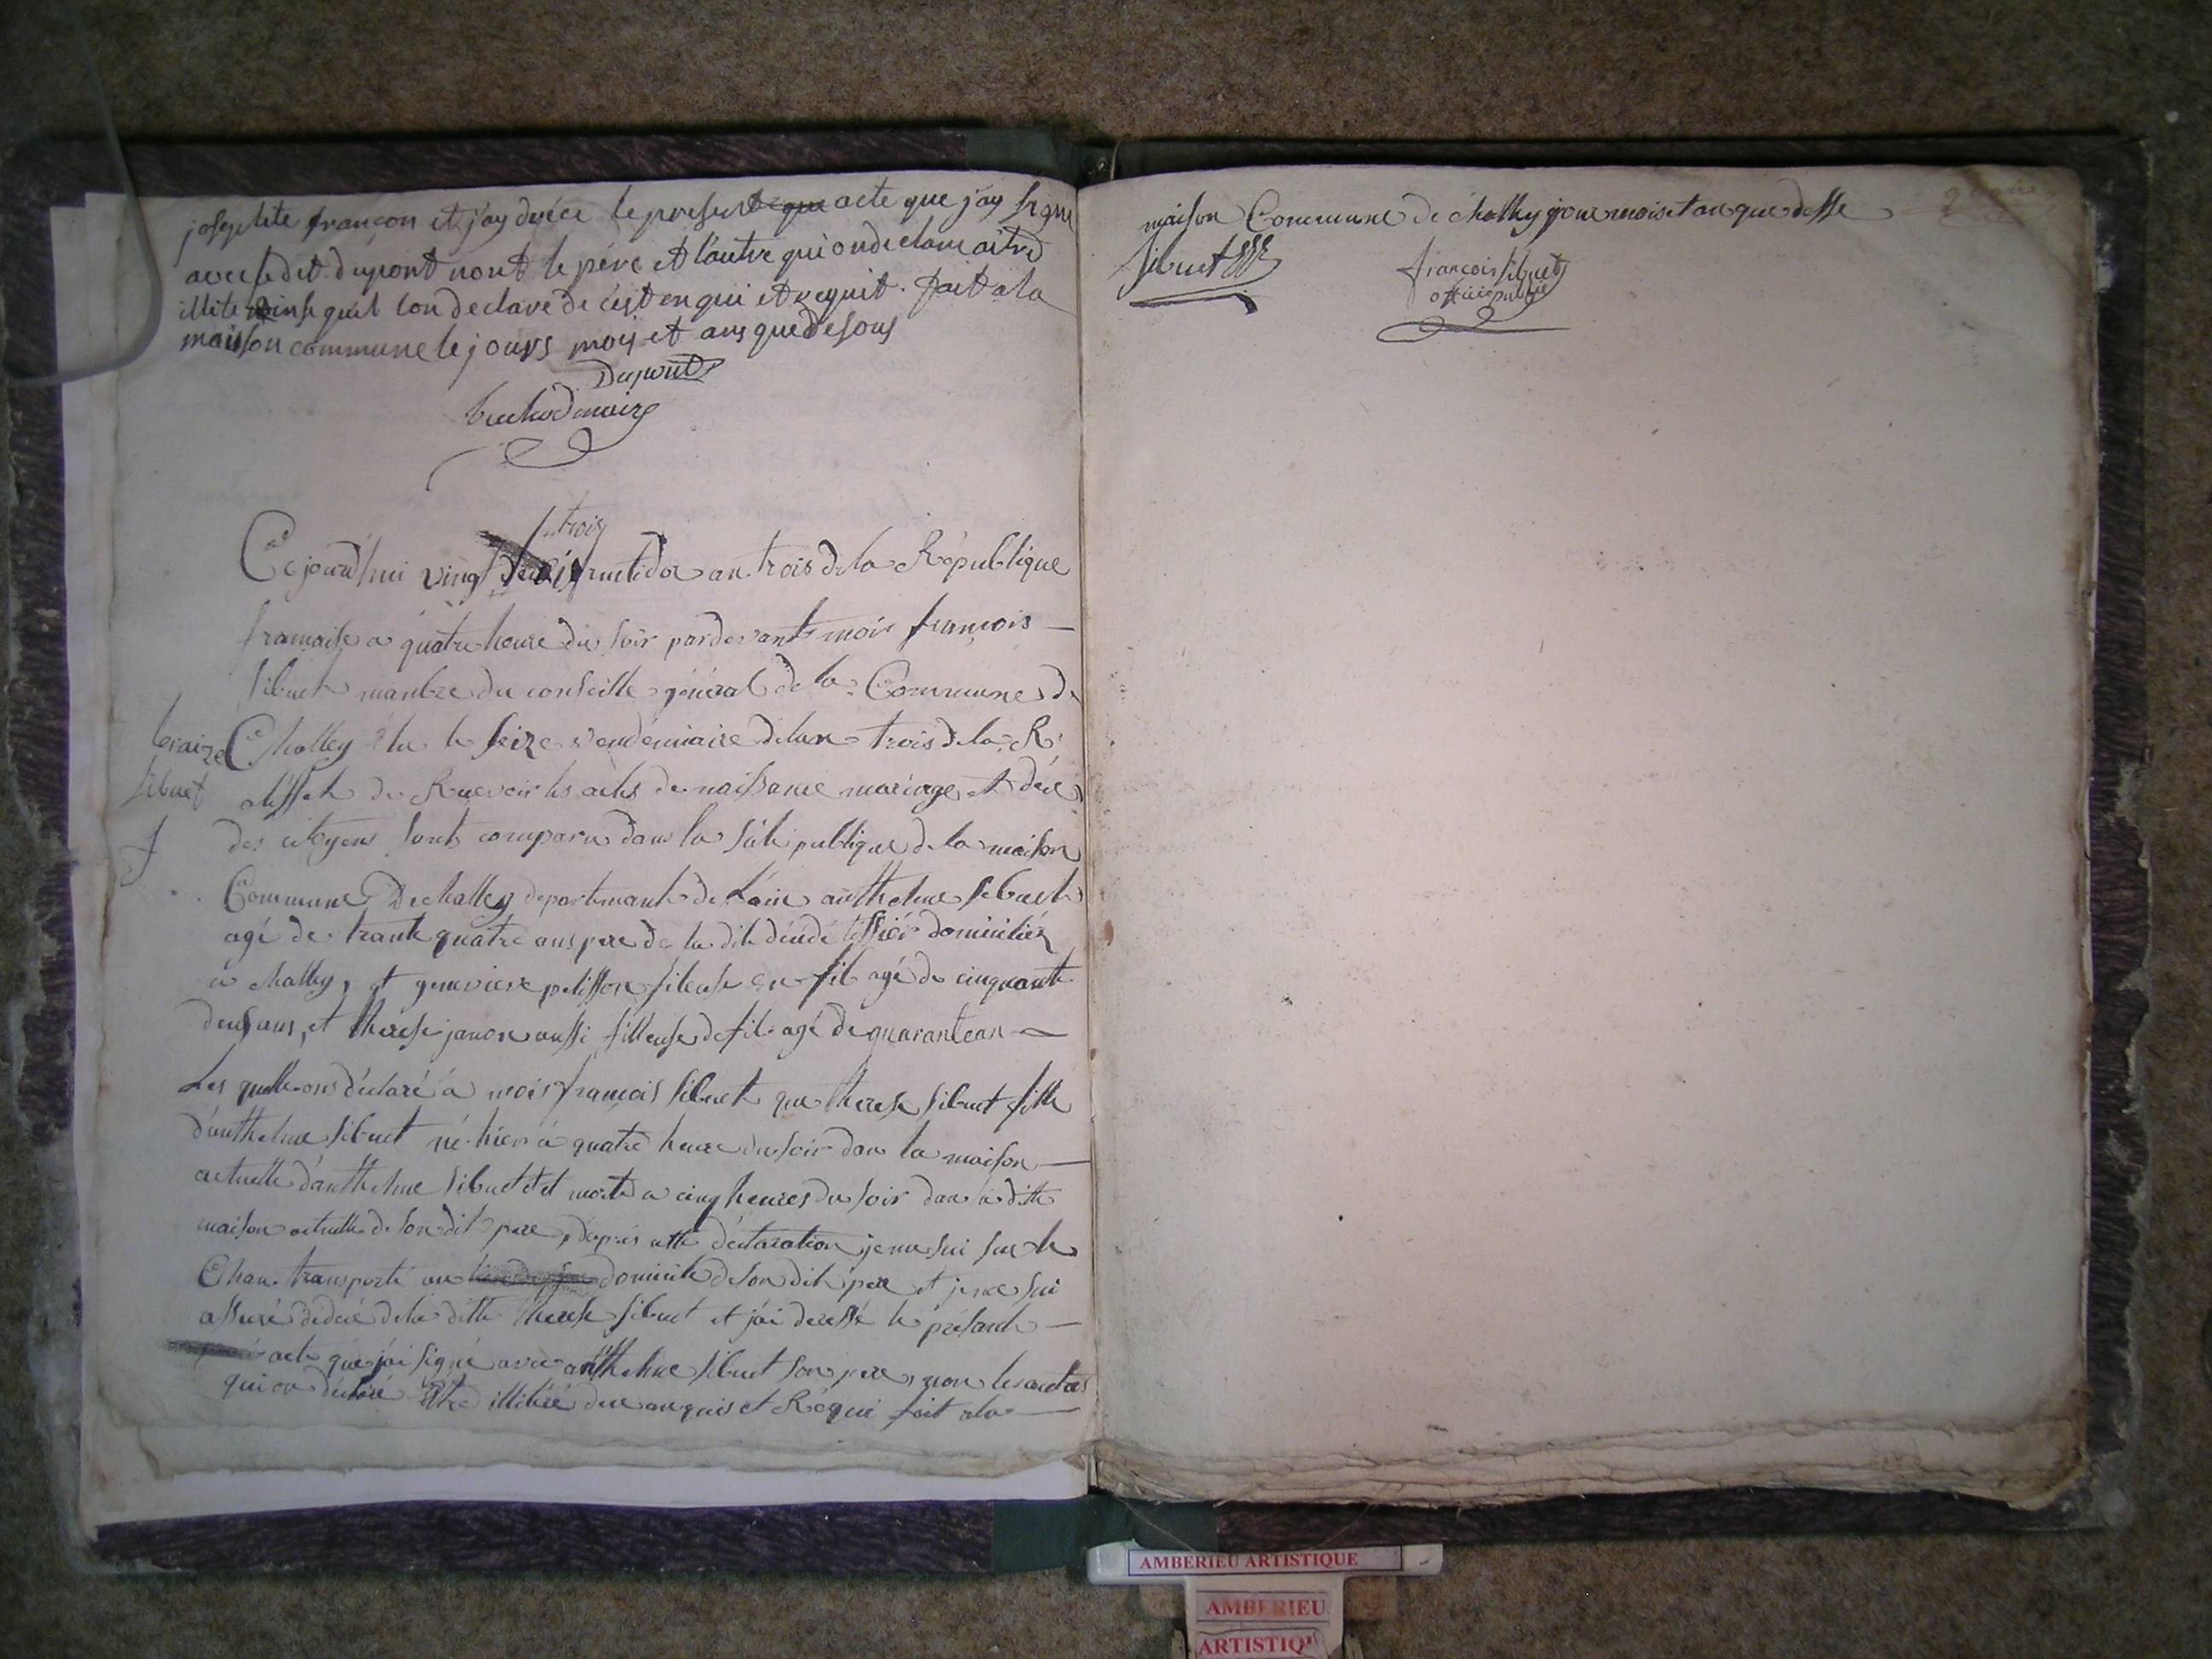 josephte françon et j'ay drécé le present acte que j'ay signe
avec ledit dupont nont le père et l'autre qui on declare aitre
illite ainse quil lon declaré de c'est enqui et requit. fait a la
maison commune le jours moy et ans que desous
Dupont
maire
trois
Ce jourd'hui vingt fruttidor an trois de la République
francaise a quatre heure du soir pardevant moi françois
sibuet manbre du conseille général de la Commune de
Challey élu le seize vendemiaire de lan trois de la R.
a leffet de Recevoir les actes de naissance mariage et décé
des citoyens sont comparu dans la sale publique de la maison
Commune De challey departemant de Lain anthelme sibuet
agé de trante quatre ans pere de la dite décédé tissier domicilié
a challey, et genevieve pelisson fileuse en fil agé de cinquante
deux ans, et therese janon aussi filleuse de fil agé de quarante an
Les quelle on déclaré a moi françois sibuet que therese sibuet fille
d'anthelme sibuet né hier a quatre heure du soir dan la maison
actuelle d'anthelme sibuet et morte a cinq heures du soir dan la ditte
maison actuelle de son dit pere, dapres cette déclaration je me sui sur le
Chan transporté au domicile de son dit pere et je me sui
assuré dedecé de la ditte therese sibuet et j'ai deressé le présant
acte que j'ai signé avec anthelme sibuet son pere, non les autres
qui on déclaré être illitéré de ce anquis et Réqui fait a la
sibuet
maison Commune de challey jour mois et an que desse
sibuet
françois sibuet
officie public
AMBERIEU ARTISTIQUE
AMBERIEU
ARTISTIQ